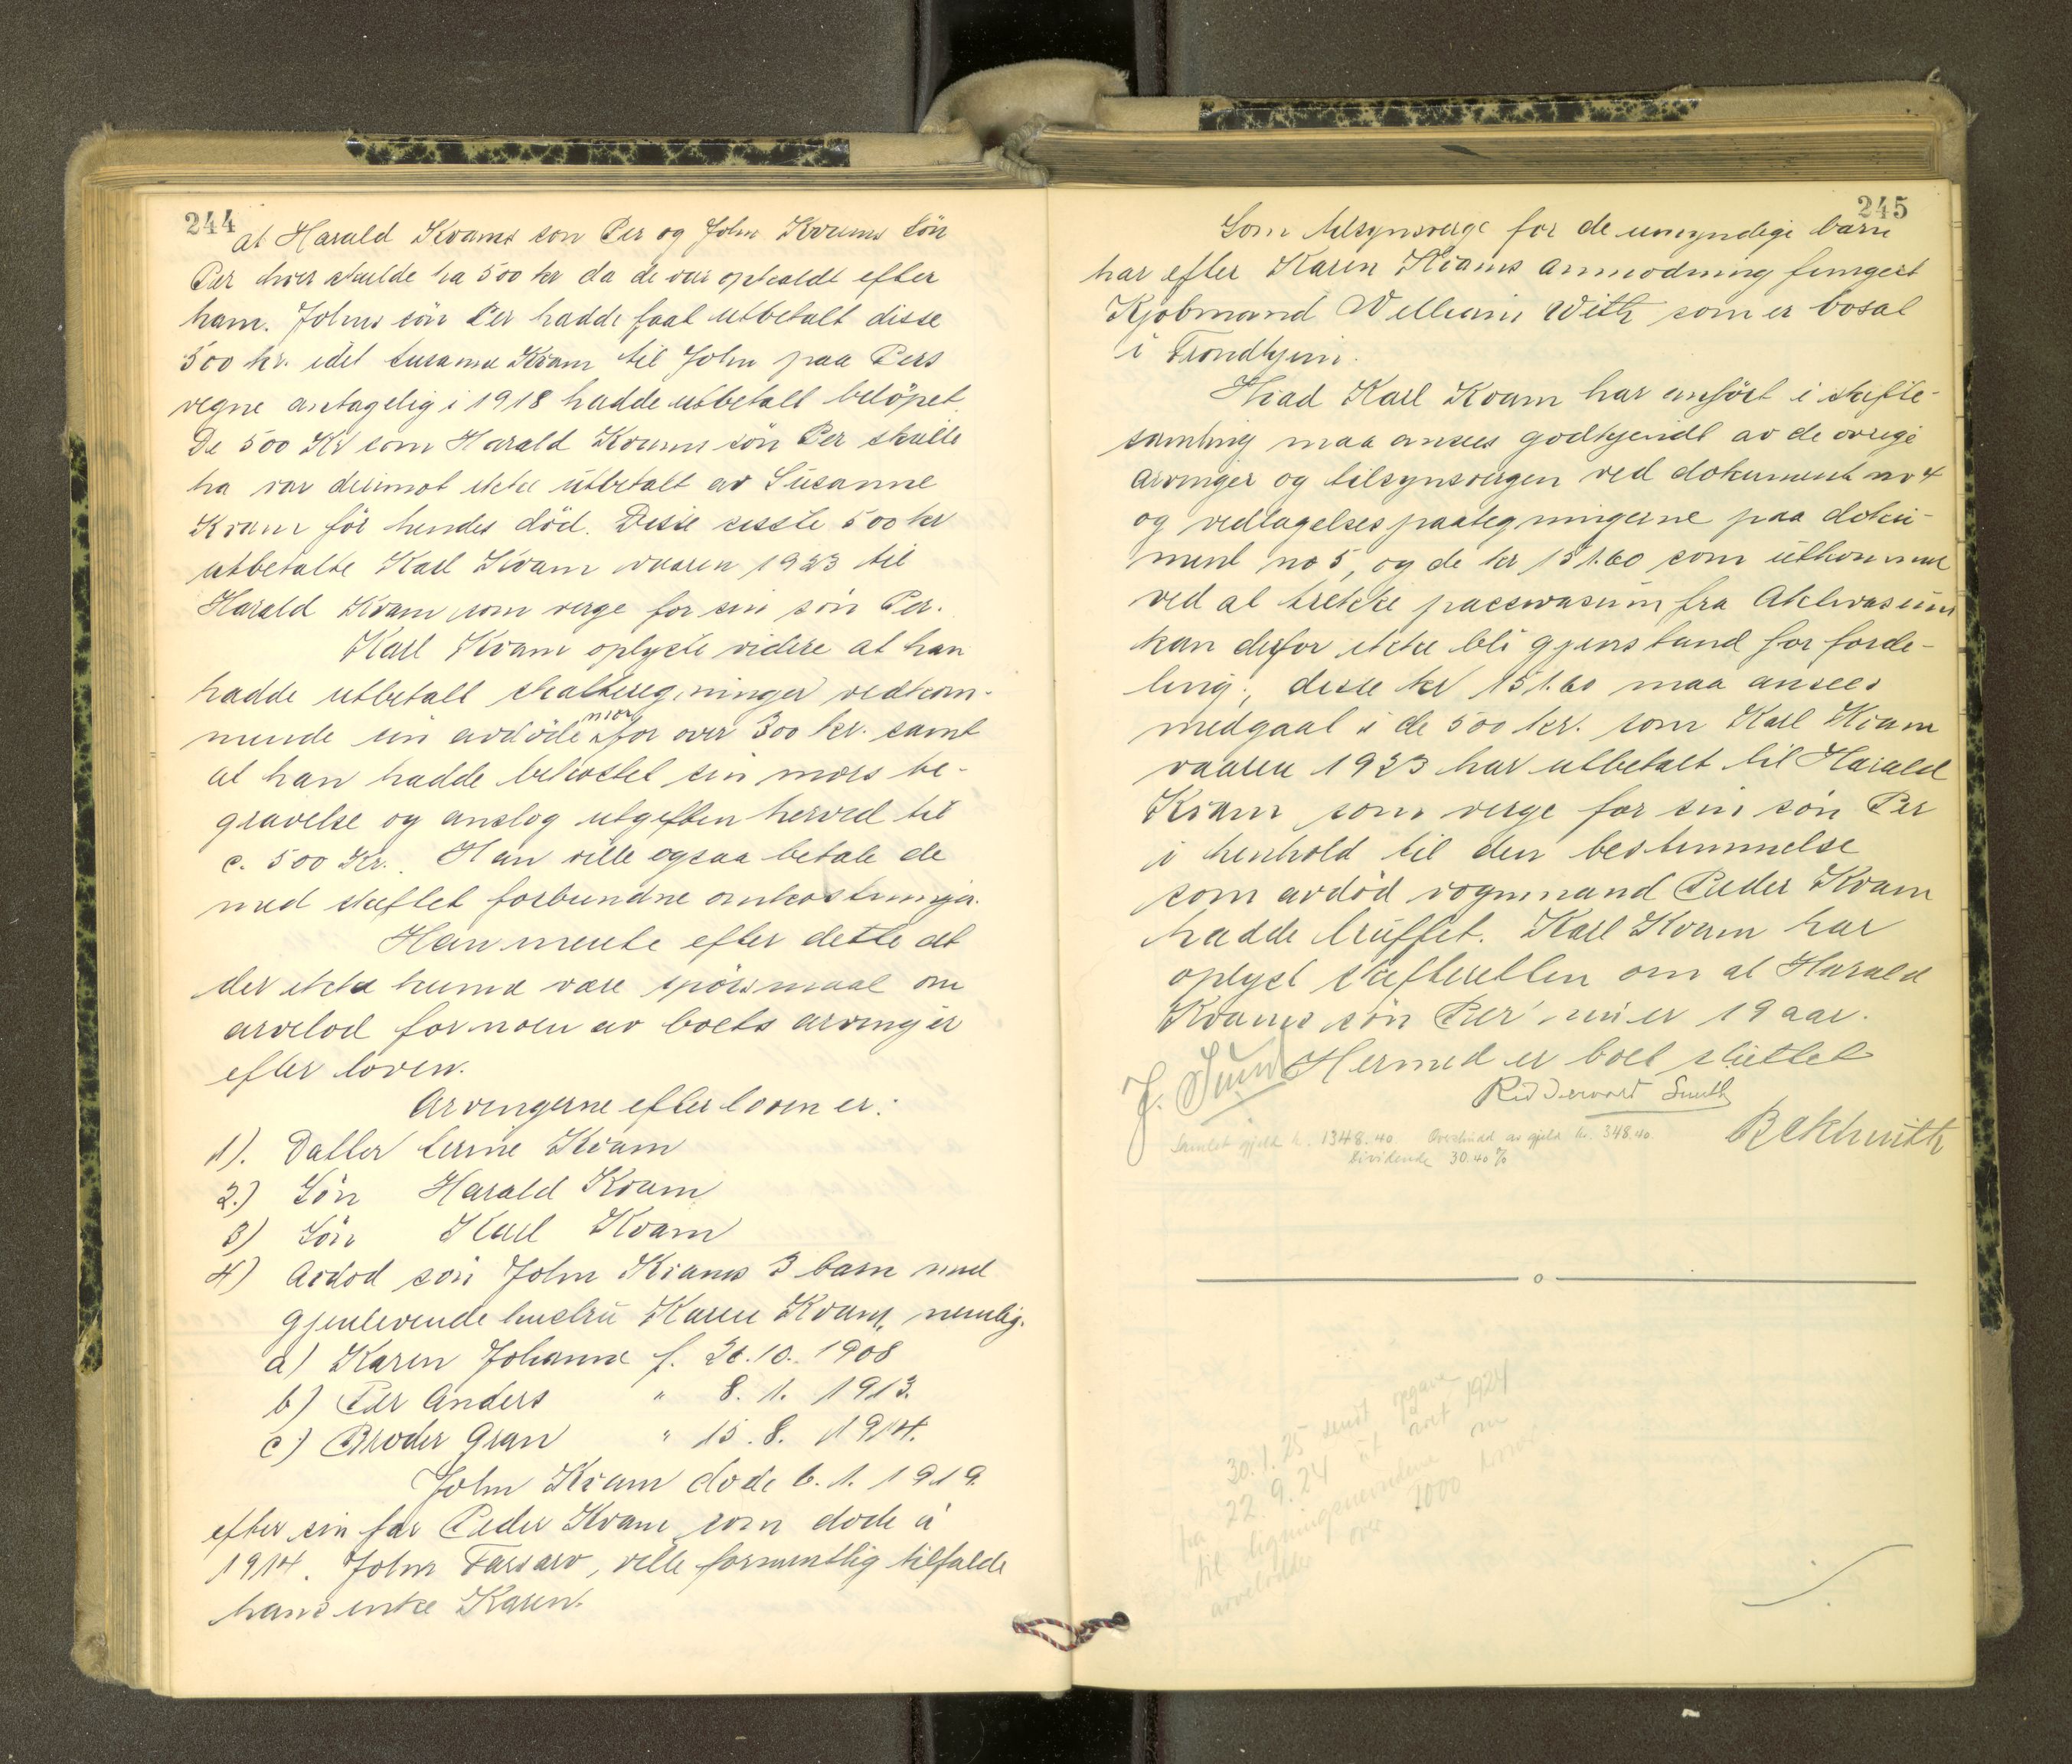 244
at Harald Kvams søn Per og John Kvams søn
Per hver skulde ha 500 kr da de var opkaldt efter
ham. Johns søn Per hadde faat utbetalt disse
500 kr. idet Susanne Kvam til John paa Pers
vegne antagelig i 1918 hadde utbetalt beløpet.
De 500 Kr som Harald Kvams søn Per skulle
ha var derimot ikke utbetalt av Susanne
Kvam før hendes død. Disse sisste 500 kr
utbetalte Karl Kvam vaaren 1923 til
Harald Kvam som verge for sin søn Per.
Karl Kvam oplyste videre at han
hadde utbetalt skatteregninger vedkom-
mende sin avdøde mor for over 300 kr. samt
at han hadde bekostet sin mors be-
gravelse og anslog utgiften herved til
c. 500 Kr. Han ville ogsaa betale de
med skiftet forbundne omkostninger.
Han mente efter dette at
der ikke kunne være spørsmaal om
arvelod for noen av boets arvinger
efter loven.
Arvingerne efter loven er:
1). Datter Serine Kvam
2.) Søn Harald Kvam
3) Søn Karl Kvam
4) Avdød søn John Kvams 3 barn med
gjenlevende hustru Karen Kvam, nemlig.
a) Karen Johanne f. 20.10. 1908
b) Per Anders " 8. 1. 1913.
c) Broder Gran " 15. 8. 1914.
John Kvam døde 6. 1. 1919.
efter sin far Peder Kvam som døde i
1914. John Farsarv, ville formentlig tilfalde
hans enke Karen.
245
Som tilsynsverge for de umyndige barn
har efter Karen Kvams anmodning fungert
Kjøbmand William With som er bosat
i Trondhjem.
Hvad Karl Kvam har anført i skifte-
samling maa ansees godkjendt av de øvrige
arvinger og tilsynsvergen ved dokument nr 4
og vedtagelsespaategningerne paa doku-
ment no 5, og de kr 151.60 som utkommer
ved at trekke passivasum fra Aktivasum
kan derfor ikke bli gjenstand for forde-
ling; disse kr 151.60 maa ansees
medgaat i de 500 kr. som Karl Kvam
vaaren 1923 har utbetalt til Harald
Kvam som verge for sin søn Per
i henhold til den bestemmelse
som avdød vognmand Peder Kvam
hadde truffet. Karl Kvam har
oplyst skifteretten om at Harald
Kvams søn Per nu er 19 aar.
Hermed er boet sluttet
J. Sund
Ridderword Smith
Samlet gjeld kr. 1348.40 Overskudd av gjeld kr. 348.40.
Dividende 30.40 %
30.1.25 sendt opgave
fra 22.9.24 ut aaret 1924
til ligningsnevndene om
arvelodder over 1000 kroner